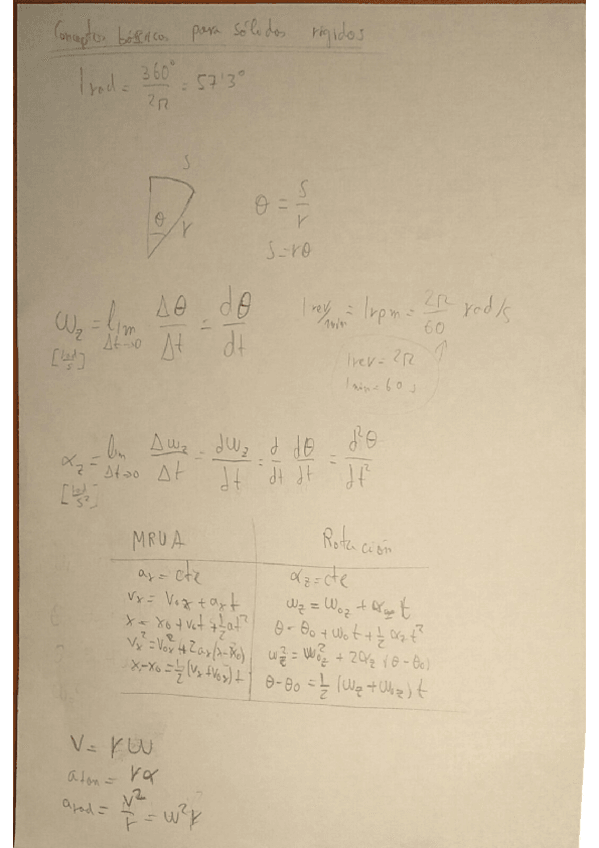 Conceptos básicos para sólidos rígidos
1 rad = 360°/2π = 57'3°
s
θ r
θ = s/r
s = rθ
ω_z = lim Δt→0 Δθ/Δt = dθ/dt
[rad/s]
1 rev/min = 1 rpm = 2π/60 rad/s
1 rev = 2π
1 min = 60 s
α_z = lim Δt→0 Δω_z/Δt = dω_z/dt = d/dt dθ/dt = d²θ/dt²
[rad/s²]
MRUA Rotación
a_x = cte α_z = cte
v_x = v_0x + a_x t ω_z = ω_0z + α_z t
x = x_0 + v_0 t + 1/2 at² θ = θ_0 + ω_0 t + 1/2 α_z t²
v_x² = v_0x² + 2a_x(x - x_0) ω_z² = ω_0z² + 2α_z (θ - θ_0)
x - x_0 = 1/2 (v_x + v_0x) t θ - θ_0 = 1/2 (ω_z + ω_0z) t
v = rω
a_tan = rα
a_rad = v²/r = ω²r